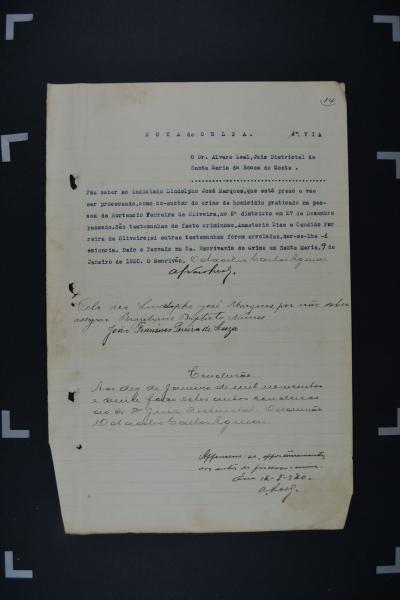 14
NOTA de CULPA. 1ª VIA
O Dr. Alvaro Leal, Juiz Districtal de
Santa Maria da Bocca do Monte.
Faz saber ao indiciado Lindolpho José Marques, que está preso e vae
ser processado, como co-auctor do crime de homicidio praticado na pes-
soa de Hortencio Ferreira de Oliveira, no 5º districto em 27 de Dezembro
passado. São testemunhas do facto criminoso, Anastacio Dias e Candido Fer
reira de Oliveira, si outras testemunhas forem arroladas, dar-se-lhe-á
sciencia. Dado e Passado na Ca. Escrivania do crime em Santa Maria, 9 de
Janeiro de 1920. O Escrivão, Odacilio Carlos Aguiar
Alvaro Leal.
Pelo réo Lindolpho José Marques por não saber
assignar Baptista Nunes
João Francisco Pereira de Souza
Conclusão
Aos dez de Janeiro de mil novecentos
e vinte faço estes autos conclusos
ao Dr Juiz Districtal. O escrivão
Odacilio Carlos Aguiar
aos autos do processo crime.
Em 12-1-920.
A Leal.